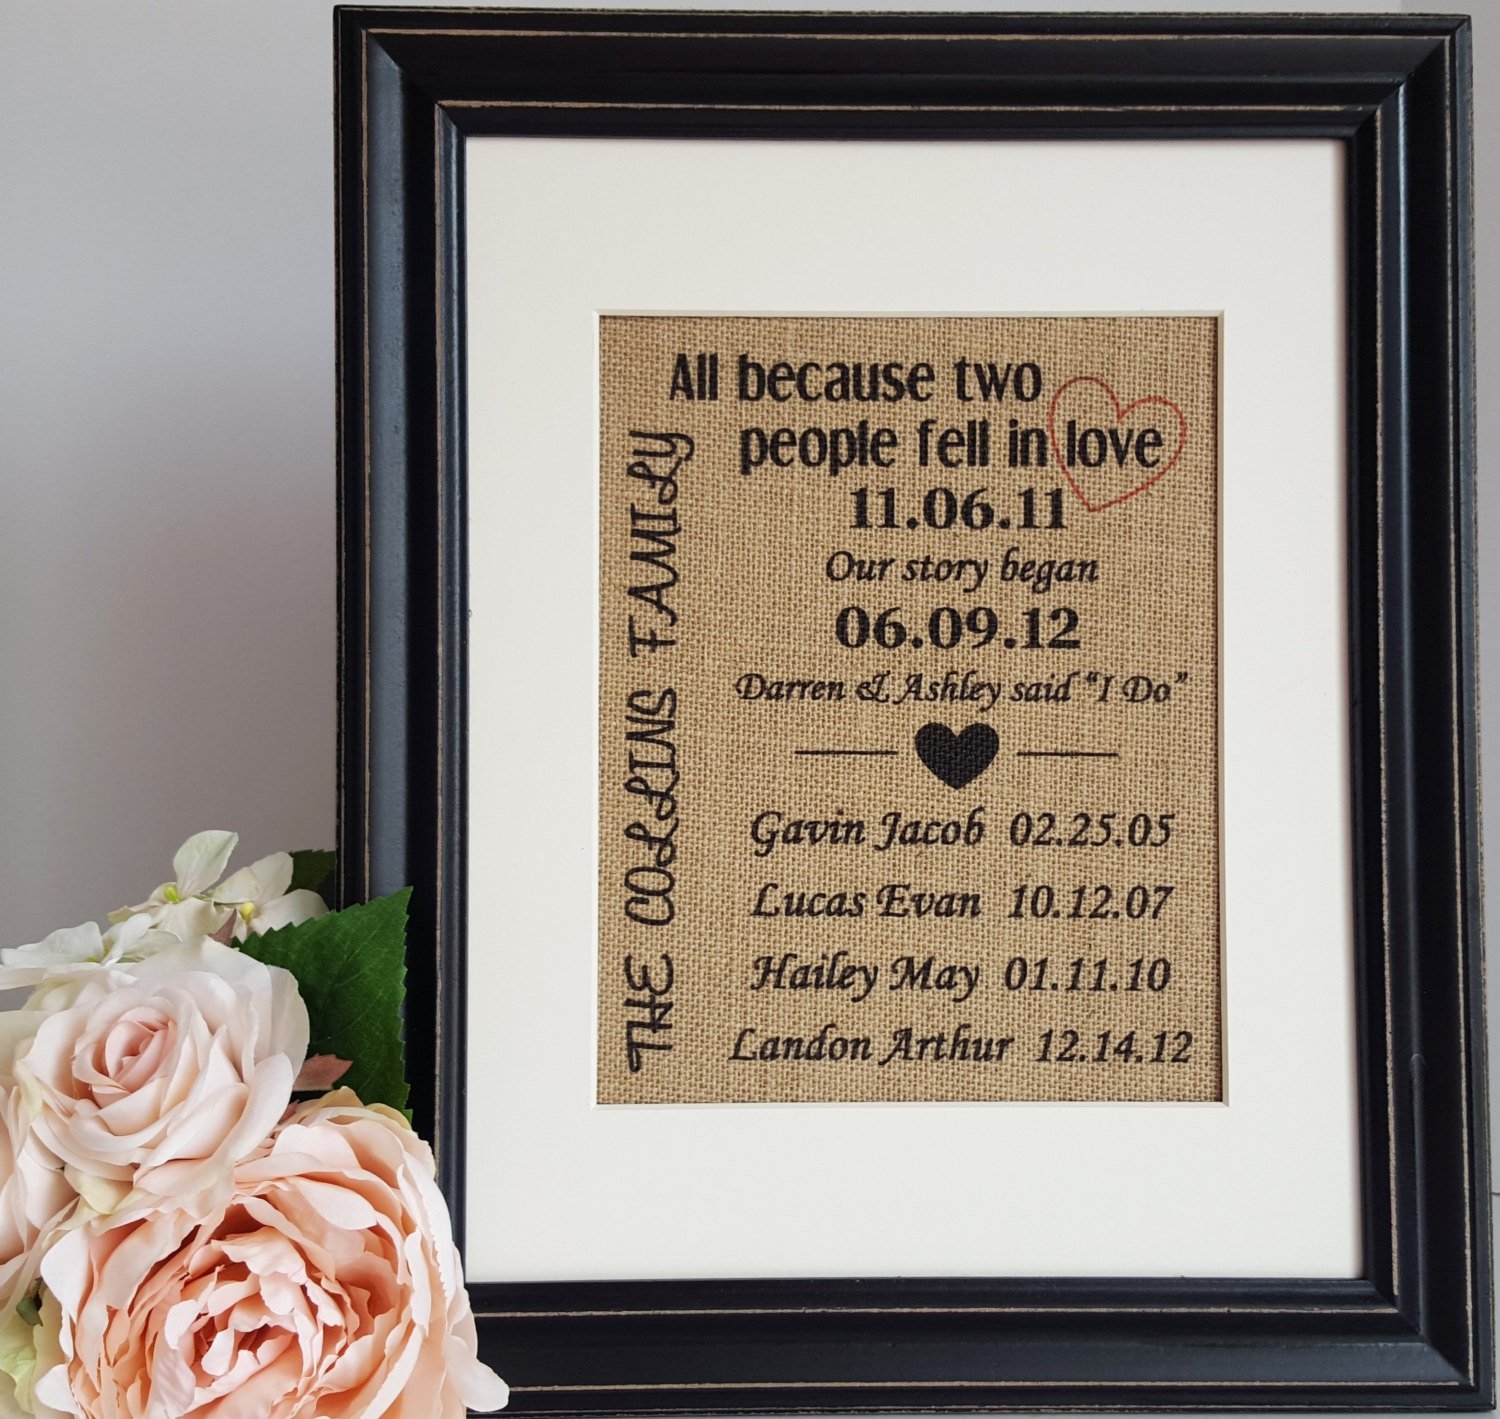 THE COLLINS FAMILY
All because two
people fell in love
11.06.11
Our story began
06.09.12
Darren & Ashley said “I Do”
Gavin Jacob 02.25.05
Lucas Evan 10.12.07
Hailey May 01.11.10
Landon Arthur 12.14.12